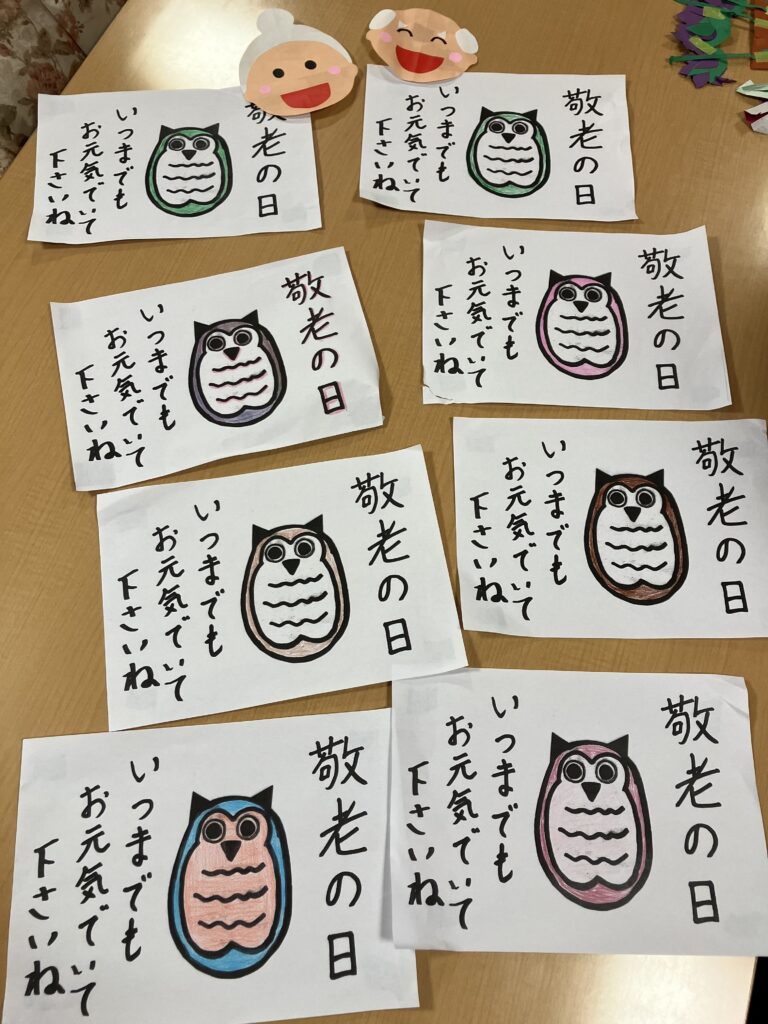 敬老の日
いつまでも
お元気でいて
下さいね
敬老の日
いつまでも
お元気でいて
下さいね
敬老の日
いつまでも
お元気でいて
下さいね
敬老の日
いつまでも
お元気でいて
下さいね
敬老の日
いつまでも
お元気でいて
下さいね
敬老の日
いつまでも
お元気でいて
下さいね
敬老の日
いつまでも
お元気でいて
下さいね
敬老の日
いつまでも
お元気でいて
下さいね